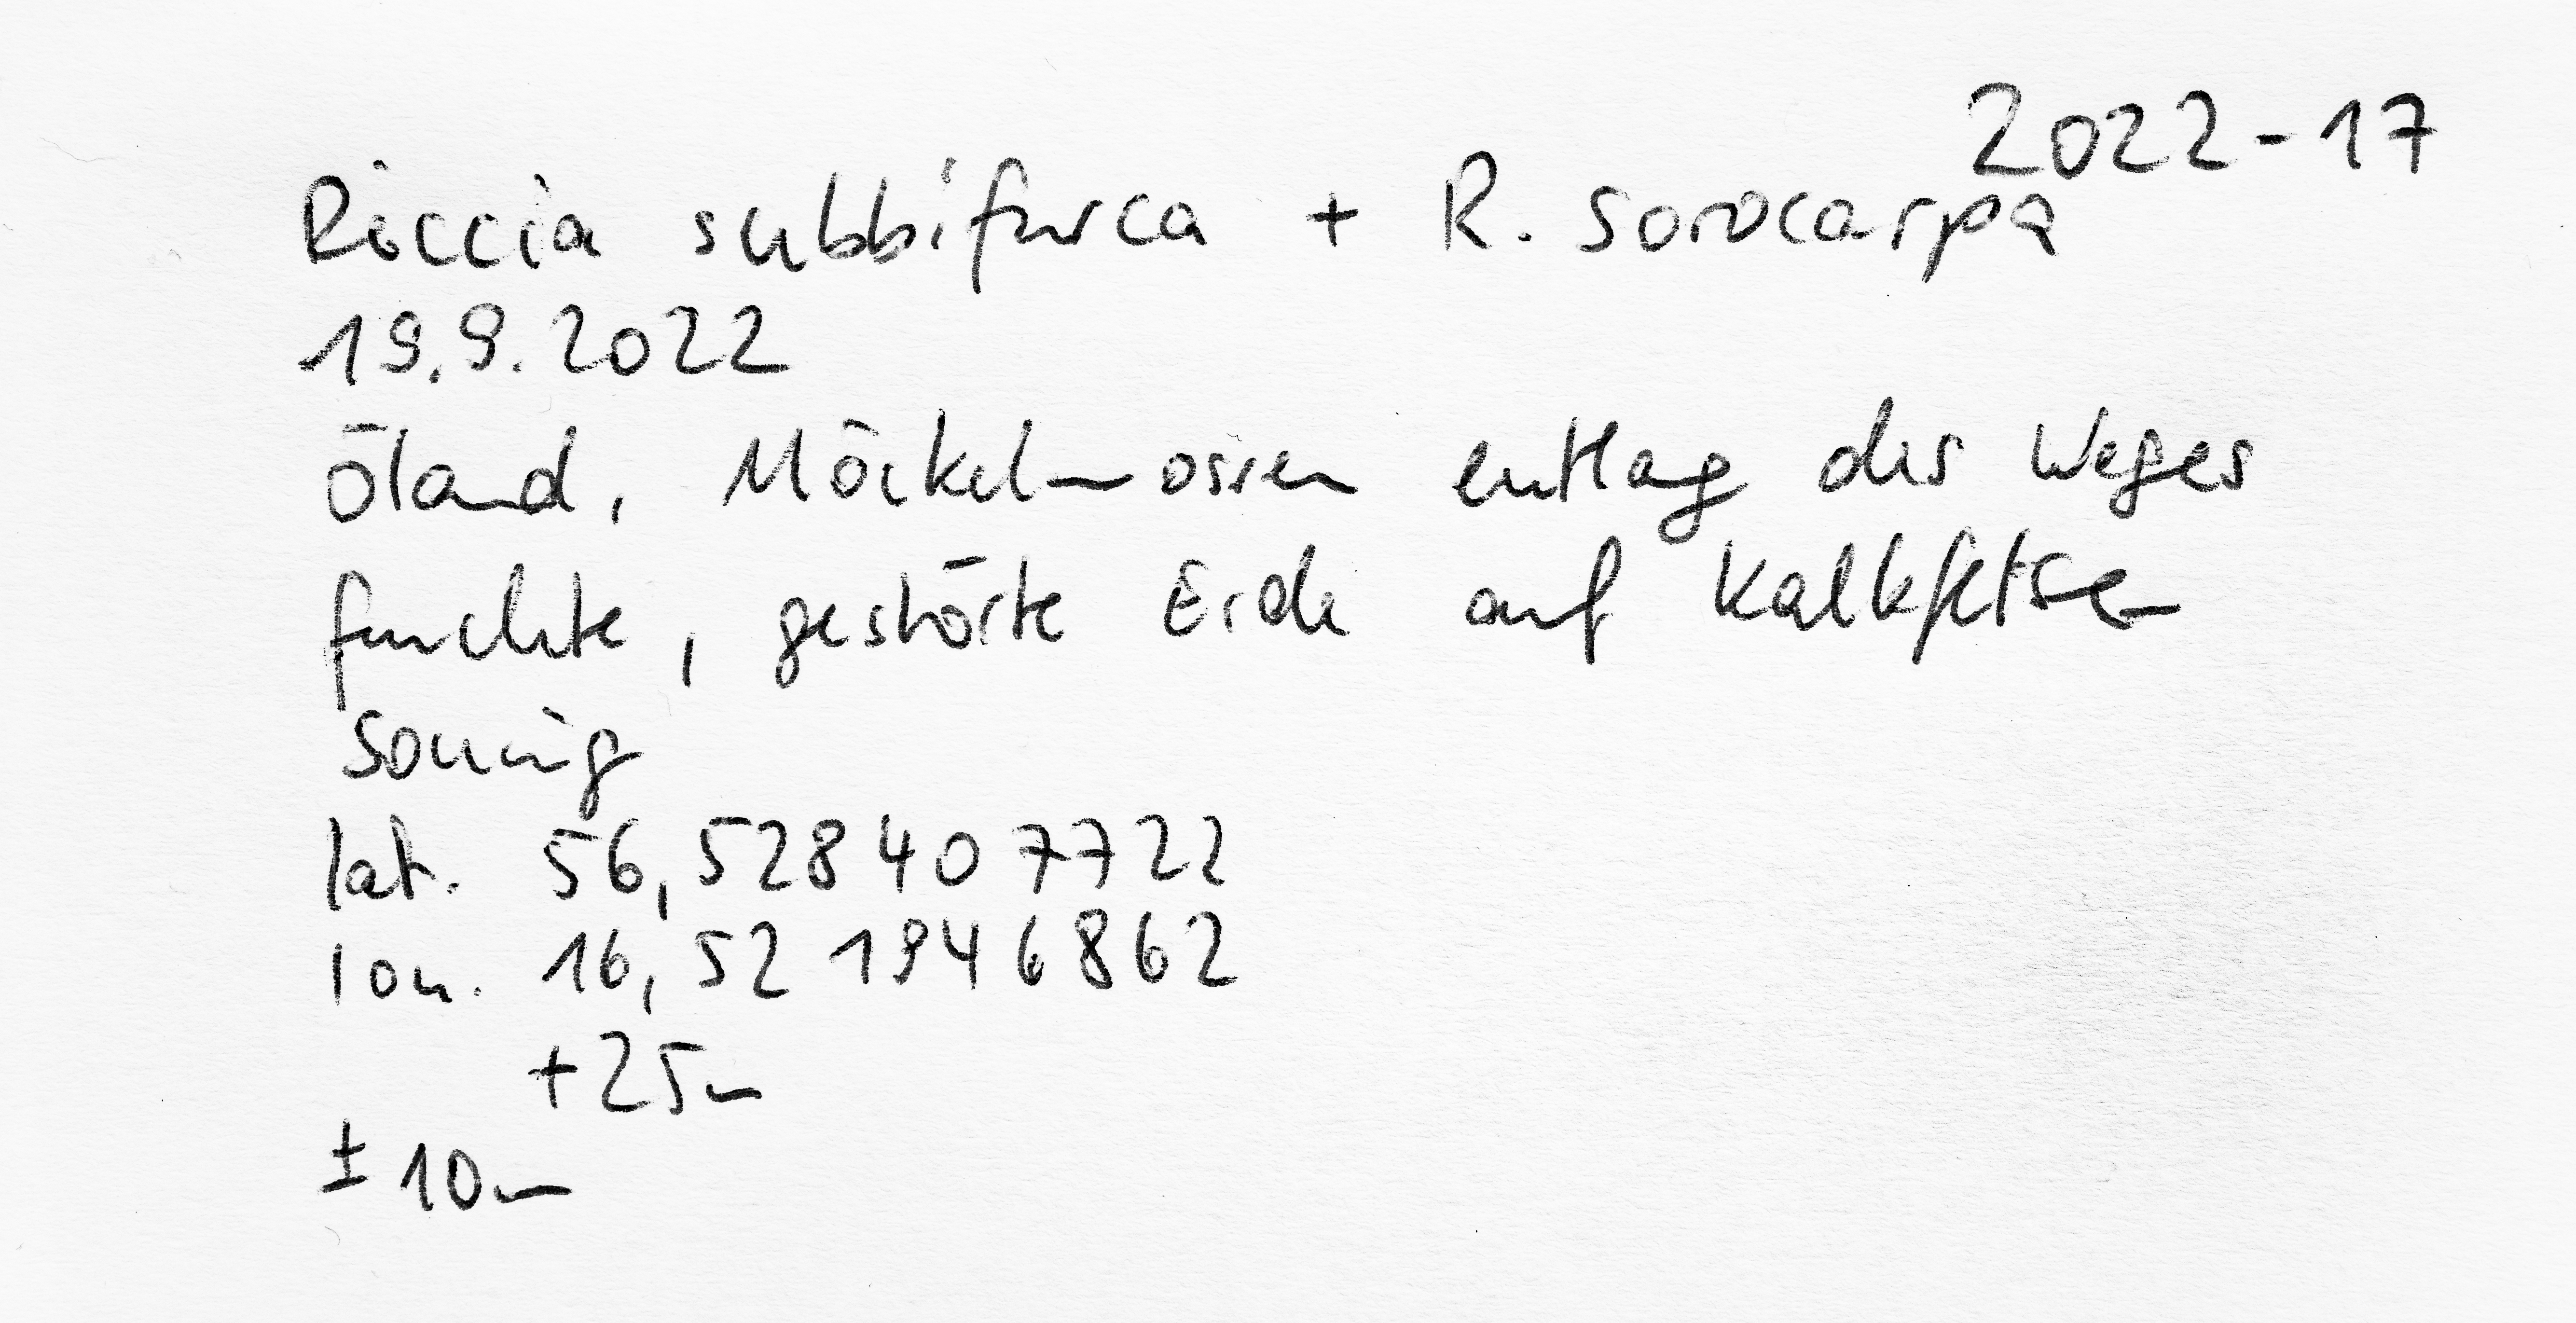 2022-17
Riccia subbifurca + R. sorocarpa
19.9.2022
Öland, Möckelmossen entlang des Weges
feuchte, gestörte Erde auf Kalkfelsen
sonnig
lat. 56,528407722
lon. 16,521946862
+25m
±10m